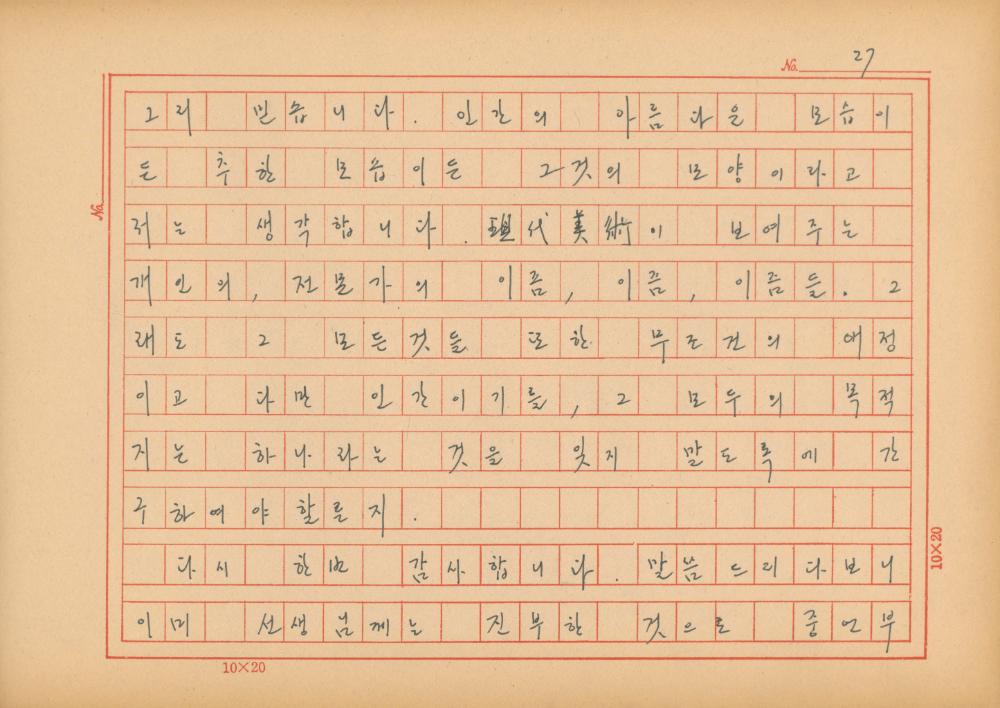 No. 27
그리 믿습니다. 인간의 아름다운 모습이
든 추한 모습이든 그것의 모양이라고
저는 생각합니다. 現代美術이 보여주는
개인의, 전문가의 이픔, 이끔, 이즘들. 그
래도 그 모든것들 또한 무조건의 애정
이고 다만 인간이기를, 그 모두의 목적
지는 하나라는 것을 잊지 말도록에 간
구하여야할른지.
다시 한번 감사합니다. 말씀드리다보니
이미 선생님께는 진부한 것으로 중언부
No.
10×20
10×20